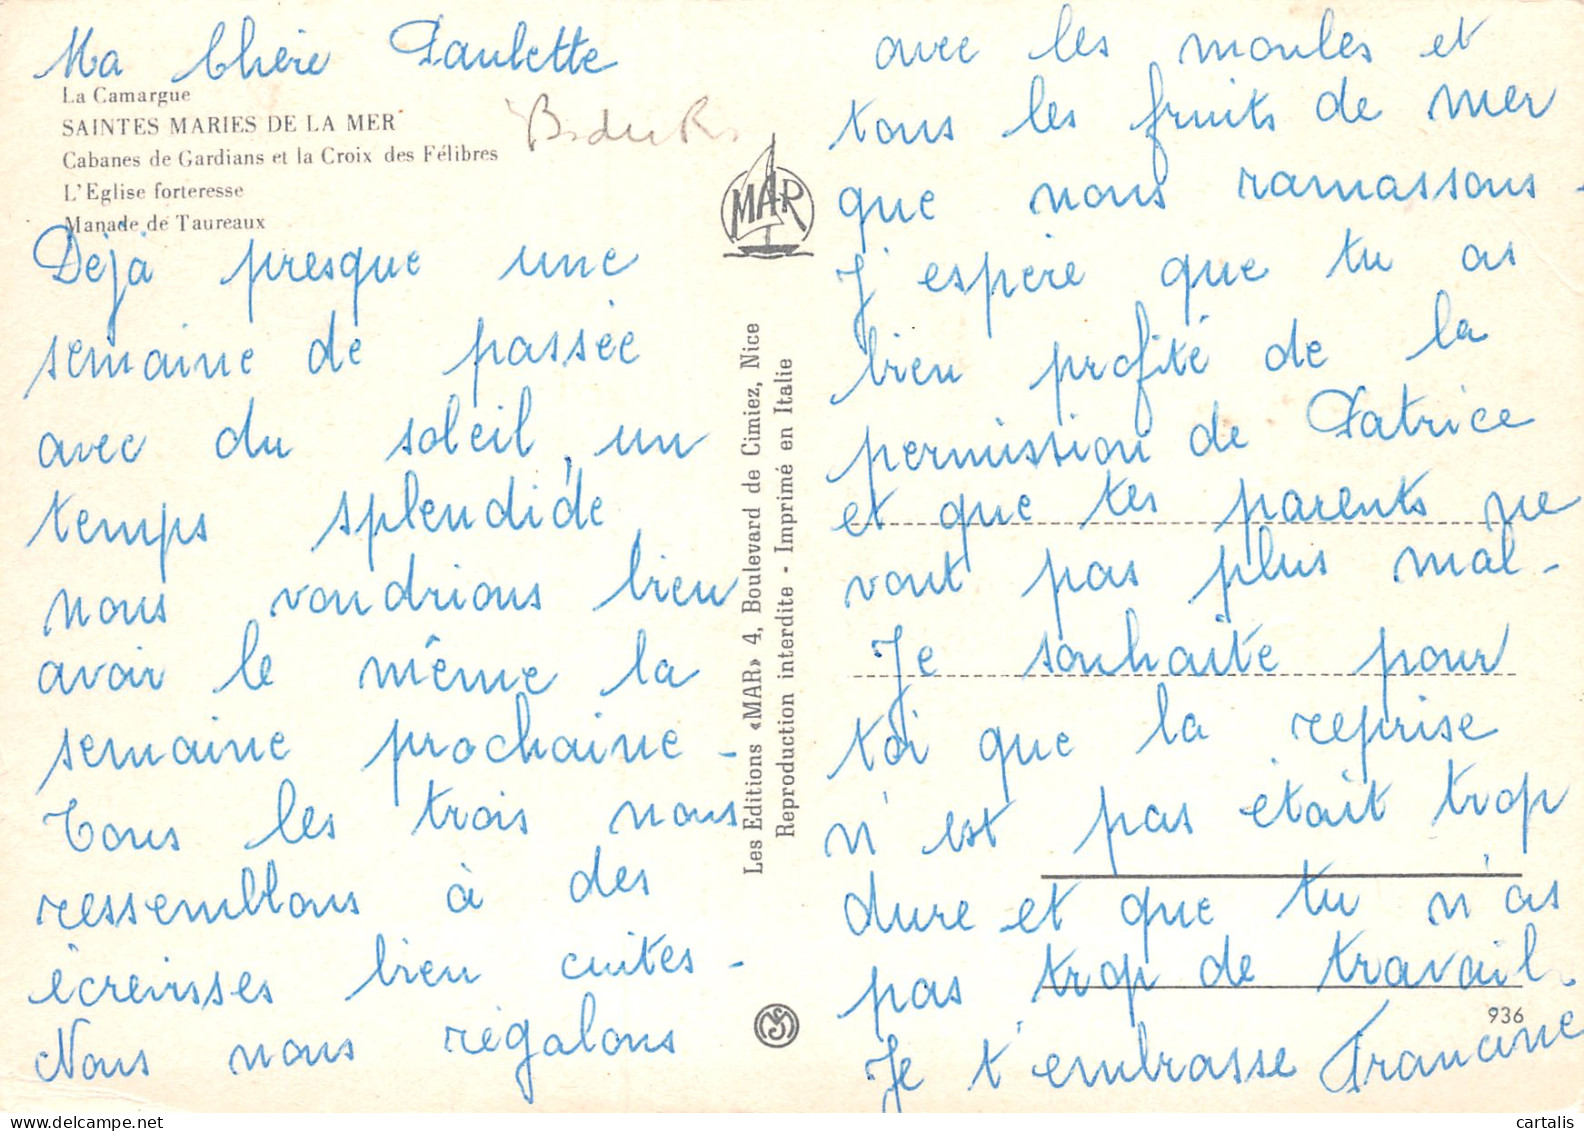 Ma Chère Paulette
La Camargue
SAINTES MARIES DE LA MER
Cabanes de Gardians et la Croix des Félibres
L'Eglise forteresse
Manade de Taureaux
Dèjà presque une
semaine de passée
avec du soleil, un
temps splendide,
nous voudrions bien
avoir le même la
semaine prochaine -
Tous les trois nous
ressemblons à des
écreivsses bien cuites -
Nous nous régalons
MAR
Les Editions «MAR» 4, Boulevard de Cimiez, Nice
Reproduction interdite - Imprimé en Italie
avec les moules et
tous les fruits de mer
que nous ramassons -
J'espère que tu as
bien profité de la
permission de Patrice
et que tes parents ne
vont pas plus mal -
Je souhaite pour
toi que la reprise
n'est pas était trop
dure et que tu n'as
pas trop de travail.
936
Je t'embrasse Francine
cartalis